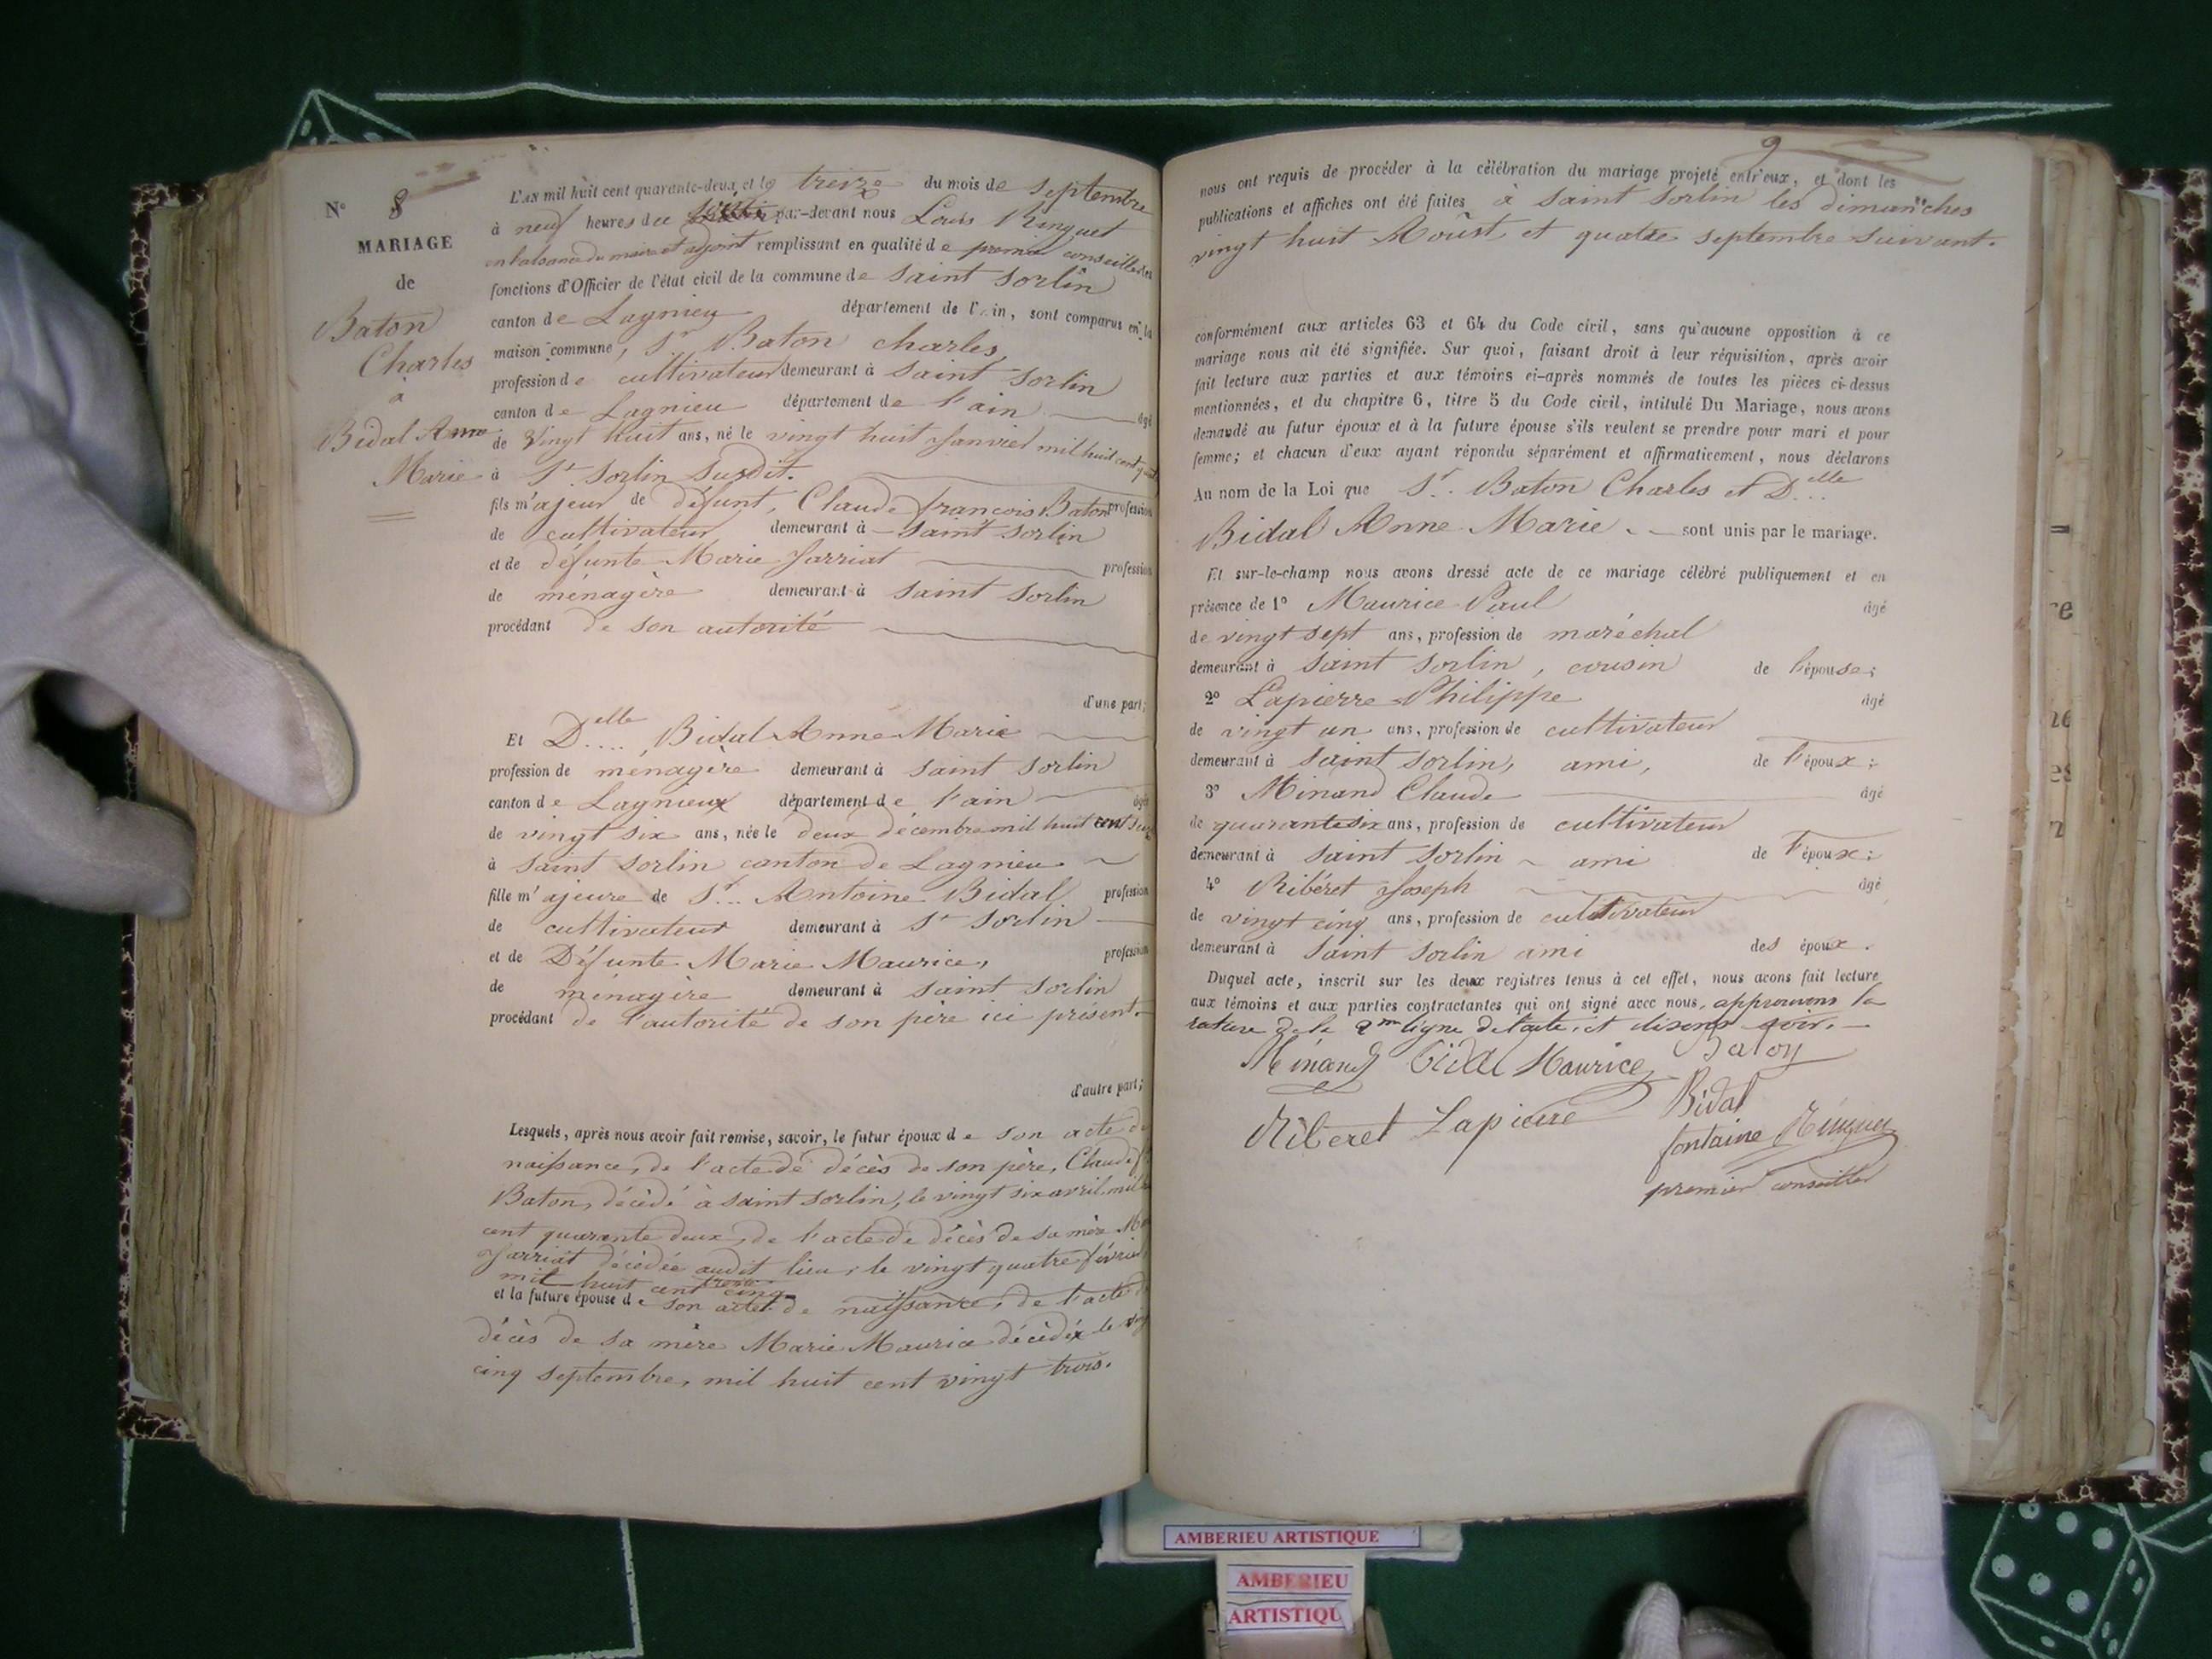 N° 8
MARIAGE
de
Baton
Charles
à
Bidal Anne
Marie
L'AN mil huit cent quarante-deux, et le treize du mois de Septembre
à neuf heures du par-devant nous Louis Ringuet
en l'absence du maire et adjoint remplissant en qualité de premier conseiller les
fonctions d'Officier de l'état civil de la commune de Saint Sorlin
canton de Lagnieu département de l'Ain, sont comparus en la
maison commune, Sr Baton Charles,
profession de cultivateur demeurant à Saint Sorlin
canton de Lagnieu département de l'ain âgé
de Vingt huit ans, né le vingt huit Janvier mil huit cent
à St Sorlin Susdit.
fils majeur de défunt, Claude françois Baton profession
de cultivateur demeurant à Saint Sorlin
et de défunte Marie Jarriat profession
de ménagère demeurant à Saint Sorlin
procédant de son autorité
d'une part;
Et Delle Bidal Anne Marie
profession de ménagère demeurant à Saint Sorlin
canton de Lagnieux département de l'ain âgée
de vingt six ans, née le deux décembre mil huit cent
à Saint Sorlin canton de Lagnieu
fille majeure de Sr Antoine Bidal profession
de cultivateur demeurant à St Sorlin
et de Défunte Marie Maurice, profession
de ménagère demeurant à Saint Sorlin
procédant de l'autorité de son père ici présent.
d'autre part;
Lesquels, après nous avoir fait remise, savoir, le futur époux de son acte de
naissance, de l'acte de décès de son père, Claude
Baton, décédé à Saint Sorlin, le vingt six avril mil
cent quarante deux, de l'acte de décès de sa mère
Jarriat décédée audit lieu, le vingt quatre février
mil huit cent trente cinq
et la future épouse de son acte de naissance, de l'acte de
décès de sa mère Marie Maurice décédée le
cinq septembre, mil huit cent vingt trois.
9
nous ont requis de procéder à la célébration du mariage projeté entr'eux, et dont les
publications et affiches ont été faites à Saint Sorlin les dimanches
vingt huit Août et quatre septembre suivant.
conformément aux articles 63 et 64 du Code civil, sans qu'aucune opposition à ce
mariage nous ait été signifiée. Sur quoi, faisant droit à leur réquisition, après avoir
fait lecture aux parties et aux témoins ci-après nommés de toutes les pièces ci-dessus
mentionnées, et du chapitre 6, titre 5 du Code civil, intitulé Du Mariage, nous avons
demandé au futur époux et à la future épouse s'ils veulent se prendre pour mari et pour
femme; et chacun d'eux ayant répondu séparément et affirmativement, nous déclarons
Au nom de la Loi que Sr. Baton Charles et Delle
Bidal Anne Marie sont unis par le mariage.
Et sur-le-champ nous avons dressé acte de ce mariage célébré publiquement et en
présence de 1° Maurice Paul âgé
de vingt sept ans, profession de maréchal
demeurant à Saint Sorlin, cousin de l'épouse;
2° Lapierre Philippe âgé
de vingt un ans, profession de cultivateur
demeurant à Saint Sorlin, ami, de l'époux;
3° Minand Claude âgé
de quarante six ans, profession de cultivateur
demeurant à Saint Sorlin ami de l'époux;
4° Ribéret Joseph âgé
de vingt cinq ans, profession de cultivateur
demeurant à Saint Sorlin ami des époux.
Duquel acte, inscrit sur les deux registres tenus à cet effet, nous avons fait lecture
aux témoins et aux parties contractantes qui ont signé avec nous, approuvons la
rature de la 2me ligne de l'acte, et disons soir.
Minand Bidal Maurice Baton
Riberet Lapierre Bidal
fontaine Ringuet
premier conseiller
AMBERIEU ARTISTIQUE
AMBERIEU
ARTISTIQU